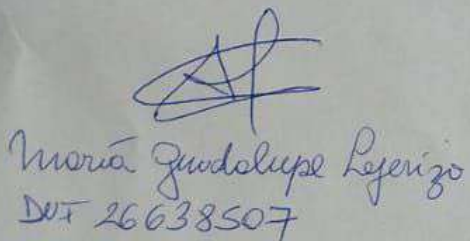 María Guadalupe Lejerizo
DNI 26638507